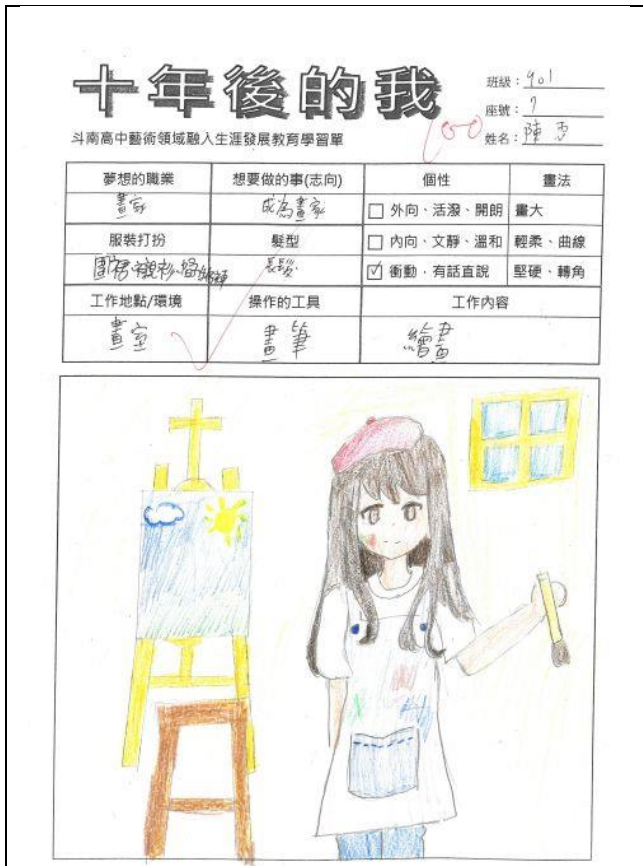 十年後的我
班級：901
座號：7
斗南高中藝術領域融入生涯發展教育學習單
100
姓名：陳
夢想的職業 想要做的事(志向) 個性 畫法
畫家 成為畫家 □ 外向、活潑、開朗 畫大
服裝打扮 髮型 □ 內向、文靜、溫和 輕柔、曲線
長髮 ☑ 衝動，有話直說 堅硬、轉角
工作地點/環境 操作的工具 工作內容
畫室 畫筆 繪畫